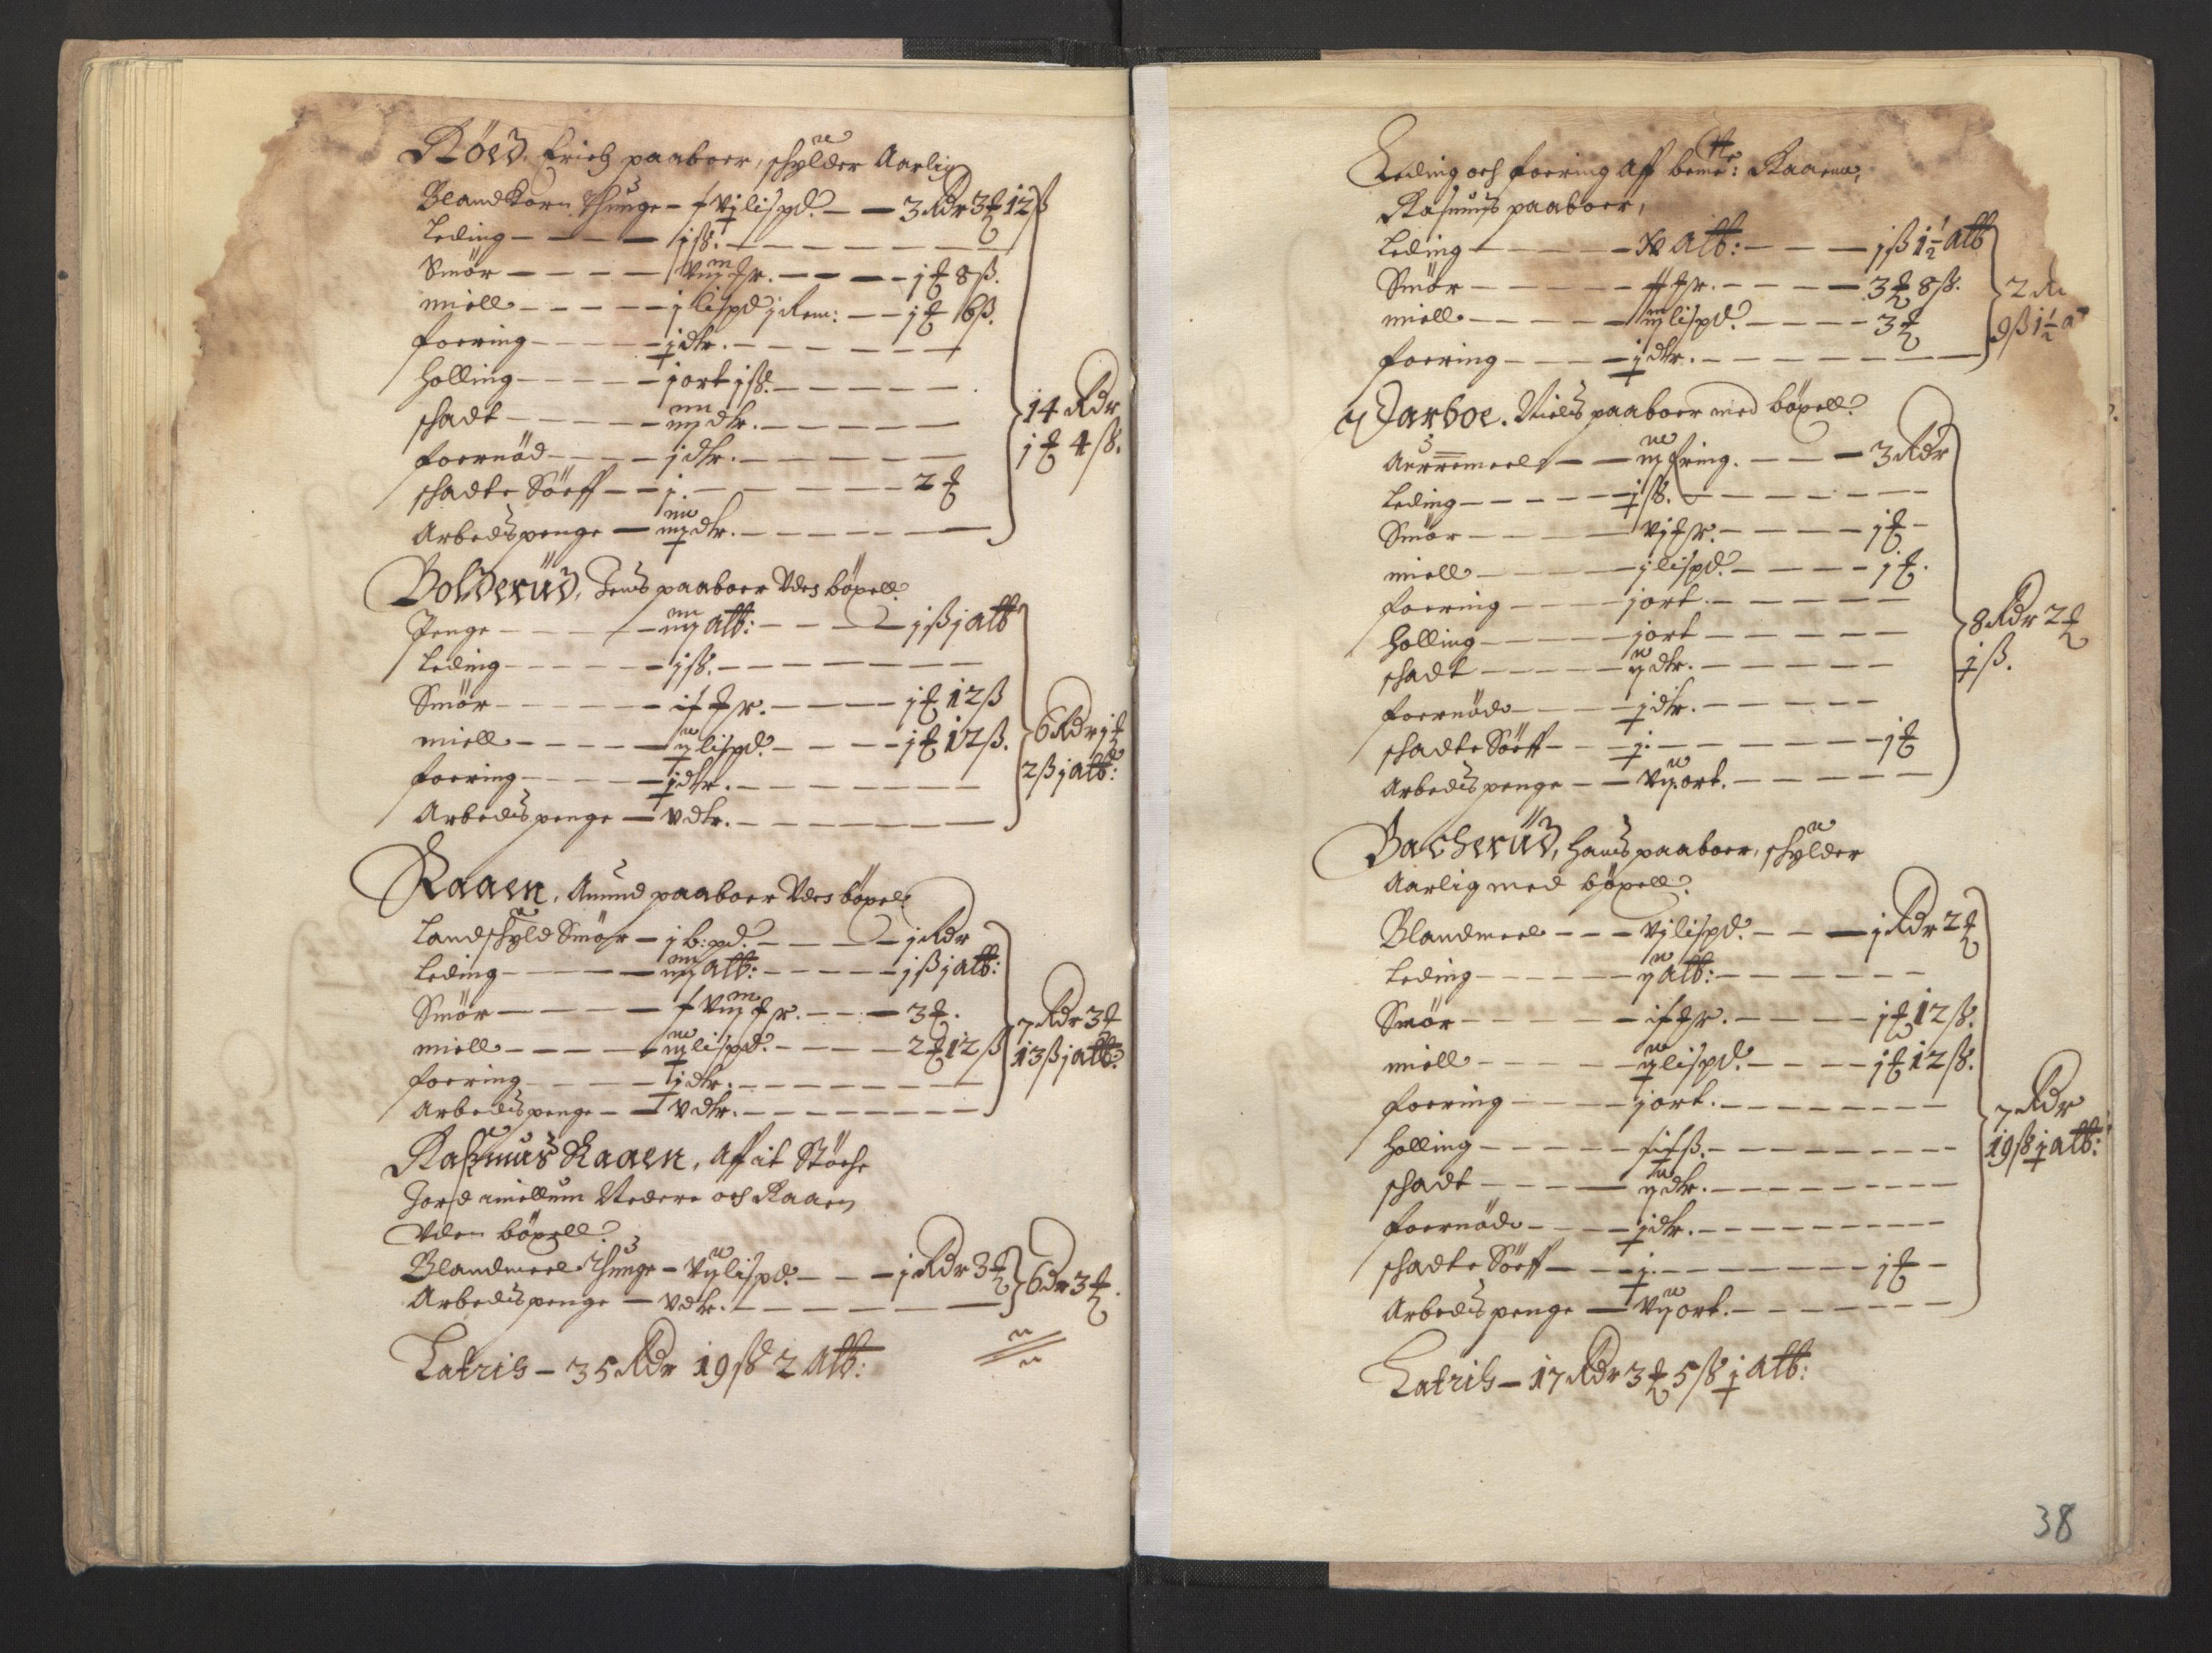 Röed, Erich paaboer, schylder Aarlig
Blandkorn Thunge – vj lispd. – 3 Rdr 3 ℔ 12 ß
Leding – j ß.
Smör – viij mr. – j ℔ 8 ß.
miell – j lispd j Rem: – j ℔ 6 ß.
foering – j dlr.
Holling – j ort j ß.
schadt – iiij dlr.
foernöd – j dlr.
schadte Söeff – j. – 2 ℔
Arbedspenge – iiij dlr.
14 Rdr
j ℔ 4 ß.
Bolderüd, Jens paaboer Vden böxell.
Penge – iiij alb: – j ß j alb
Leding – j ß.
Smör – j ℔ 12 ß
miell – ij lispd. – j ℔ 12 ß.
foering – j dlr.
Arbedspenge – v dlr.
6 Rdr j ℔
2 ß j alb:
Raaen, Amund paaboer Vden böxell
Landschyld Smör – j b: pd. – j Rdr
Leding – iiij alb: – j ß j alb:
Smör – – 3 ℔.
miell – iij lispd. – 2 ℔ 12 ß
foering – j dlr.
Arbedspenge – v dlr.
7 Rdr 3 ℔
13 ß j alb:
Rasmus Raaen, Aff it Støche
Jord imellum Nedere och Raaen
Vden böxell.
Blandmeel Thunge – vij lispd. – j Rdr 3 ℔
Arbedspenge – v dlr.
6 dr 3 ℔.
Latris – 35 Rdr 19 ß 2 alb:
Leding och foering Aff bemte: Raaenn,
Rasmus paaboer,
Leding – alb: – j ß 1½ alb
Smör – – 3 ℔ 8 ß.
miell – iij lispd. – 3 ℔
foering – j dlr.
2 R
9 ß 1½ a
Jarboe. Niels paaboer med böxell.
– 3 Rdr
Leding – j ß.
Smör – vj mr. – j ℔ –
miell – j lispd. – j ℔.
foering – j ort.
Holling – j ort
schadt – ij dlr.
foernöd – j dlr.
schadte Söeff – j. – j ℔
Arbedspenge – vij ort.
8 Rdr 2 ℔
j ß.
Bacherüd, Hans paaboer, schylder
Aarlig med böxell.
Blandmeel – vj lispd. – j Rdr 2 ℔
Leding – ij alb:
Smör – – j ℔ 12 ß.
miell – ij lispd. – j ℔ 12 ß.
foering – j ort.
Holling – ß.
schadt – ij dlr.
foernöd – j dlr.
schadte Söeff – j. – j ℔ –
Arbedspenge – vij ort.
7 Rdr
19 ß j alb:
Latris – 17 Rdr 3 ℔ 5 ß j alb:
38